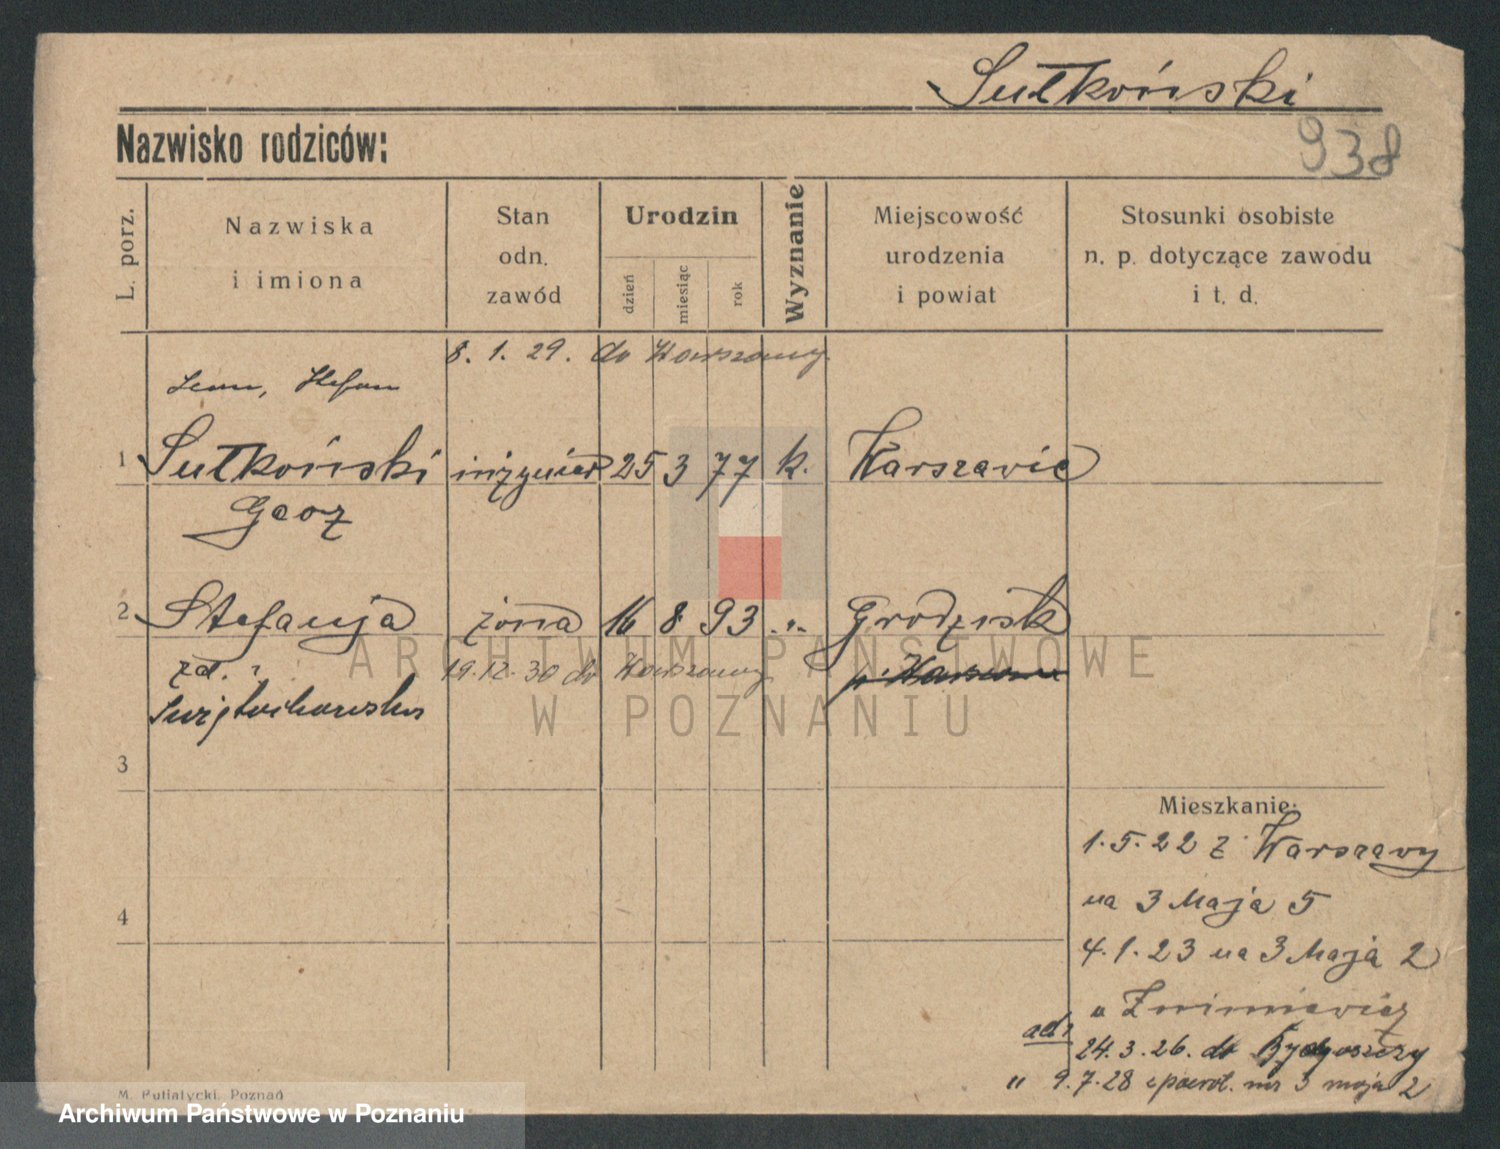 Sułkoński
938
Nazwisko rodziców:
L. porz.
Nazwiska
i imiona
Stan
odn.
zawód
Urodzin
dzień
miesiąc
rok
Wyznanie
Miejscowość
urodzenia
i powiat
Stosunki osobiste
n. p. dotyczące zawodu
i t. d.
8. 1. 29. do Warszawy
Leon, Stefan
1 Sułkoński inżynier 25 3 77 k. Warszawie
2 Stefanja żona 16 8 93 „ Grodzisk
zd. 19.12.30 do Warszawy
Świętochowska
3
4
Mieszkanie:
1.5.22 z Warszawy
na 3 Maja 5
4.1.23 na 3 Maja 2
u
ad 1 24.3.26. do Bydgoszczy
" 9.7.28 i powrót. na 3 maja 2
M. Putiatycki, Poznań
ARCHIWUM PAŃSTWOWE
W POZNANIU
Archiwum Państwowe w Poznaniu